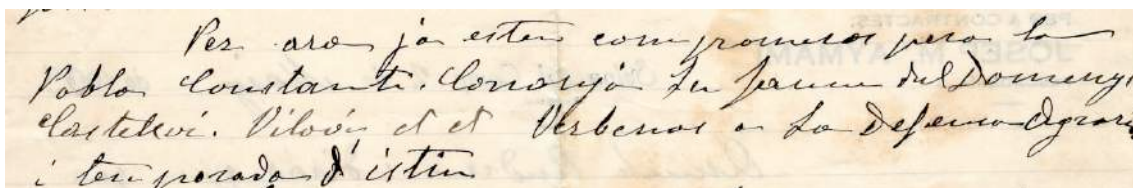 Per ara ja estem compromesos pera la
Pobla Constanti. Conongia Sn Jaume del Domenys
Castellvi. Vilovi et et Verbenas a La Defensa Agraria
i temporada d'istiu